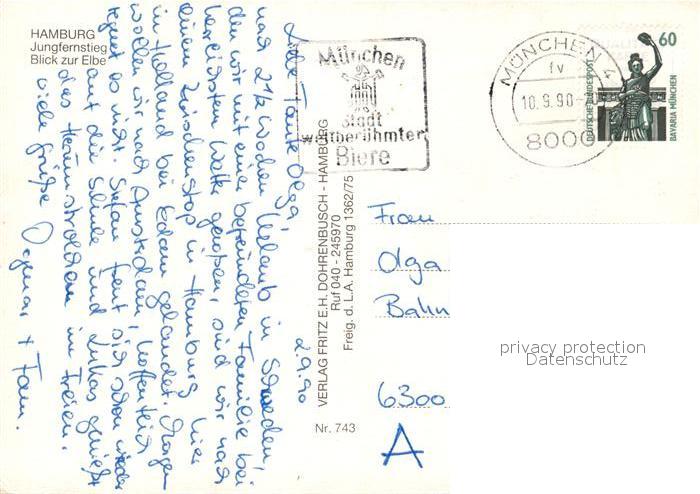 HAMBURG
Jungfernstieg
Blick zur Elbe
2.9.90
Liebe Tante Olga,
nach 2½ Wochen Urlaub in Schweden,
den wir mit einer befreundeten Familie bei
herrlichstem Wetter genossen, sind wir nach
einem Zwischenstop in Hamburg hier
in Holland bei Edam gelandet. Morgen
wollen wir nach Amsterdam, hoffentlich
regnet es nicht. Stefan freut sich schon wieder
auf die Schule und Lukas genießt
das Herumstrolchen im Freien.
Viele Grüße Dagmar + Fam.
VERLAG FRITZ E.H. DOHRENBUSCH - HAMBURG
Ruf 040 - 245970
Freig. d. L.A. Hamburg 1362/75
Nr. 743
München
Stadt
weltberühmter
Biere
MÜNCHEN 4
fv
10.9.90
8000
60
DEUTSCHE BUNDESPOST
BAVARIA MÜNCHEN
Frau
Olga
Bahn
privacy protection
Datenschutz
6300
A